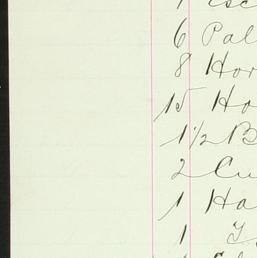 6 Pal
8 Hor
15 Ho
1 1/2 B
2 Cu
1 Ha
1